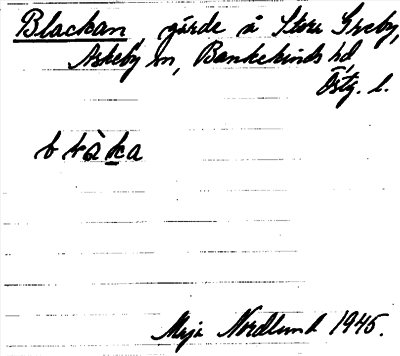 Blackan, gärde å Store Greby,
Askeby sn, Bankekinds hd
Östg. l.
bḷàka
Maja Nordlund 1945.